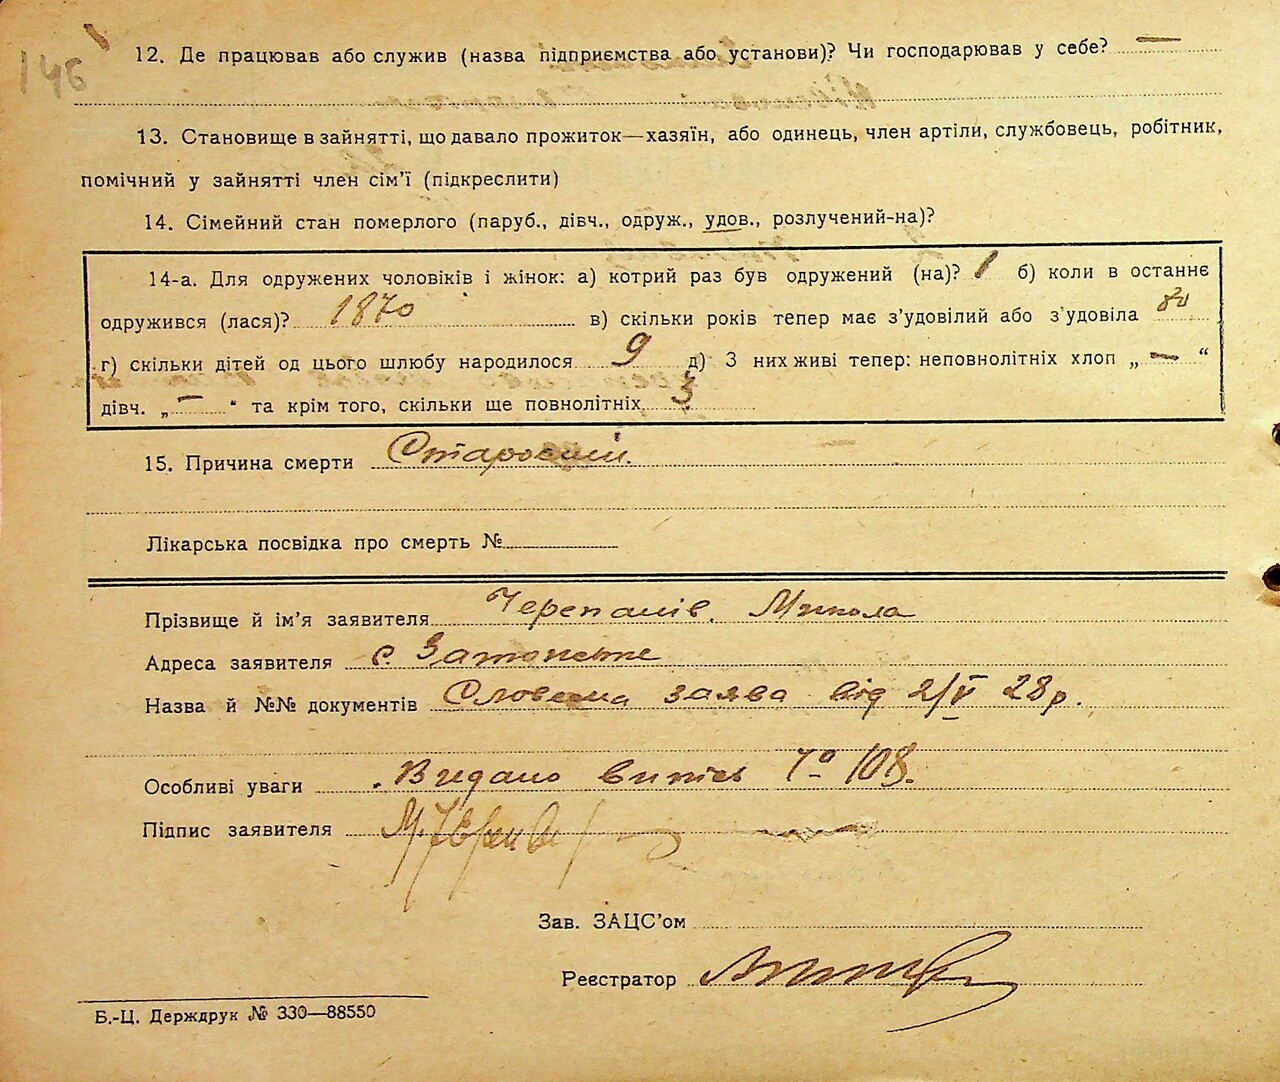 146
12. Де працював або служив (назва підприємства або установи)? Чи господарював у себе? —
13. Становище в зайнятті, що давало прожиток—хазяїн, або одинець, член артіли, службовець, робітник,
помічний у зайнятті член сім'ї (підкреслити)
14. Сімейний стан померлого (паруб., дівч., одруж., удов., розлучений-на)?
14-а. Для одружених чоловіків і жінок: а) котрий раз був одружений (на)? 1 б) коли в останнє
одружився (лася)? 1870 в) скільки років тепер має з'удовілий або з'удовіла 80
г) скільки дітей од цього шлюбу народилося 9 д) З них живі тепер: неповнолітніх хлоп „ — “
дівч. „ — “ та крім того, скільки ще повнолітніх 3
15. Причина смерти
Лікарська посвідка про смерть №
Прізвище й ім'я заявителя Микола
Адреса заявителя с. Затонське
Назва й №№ документів Словесна заява від 2/V 28р.
Особливі уваги Видано випис 108.
Підпис заявителя
Зав. ЗАЦС'ом
Реєстратор
Б.-Ц. Держдрук № 330—88550